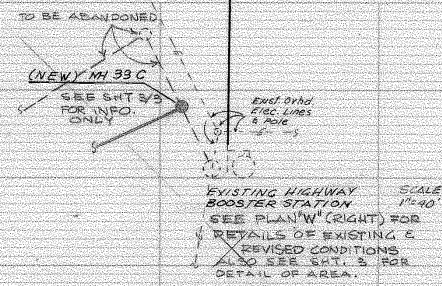 TO BE ABANDONED
(NEW) MH 33 C
SEE SHT 3/3
FOR INFO.
ONLY
Exist. Ovhd.
Elec. Lines
& Pole
EXISTING HIGHWAY
BOOSTER STATION
SCALE
1"=40'
SEE PLAN "W" (RIGHT) FOR
DETAILS OF EXISTING &
REVISED CONDITIONS
ALSO SEE SHT. 3 FOR
DETAIL OF AREA.